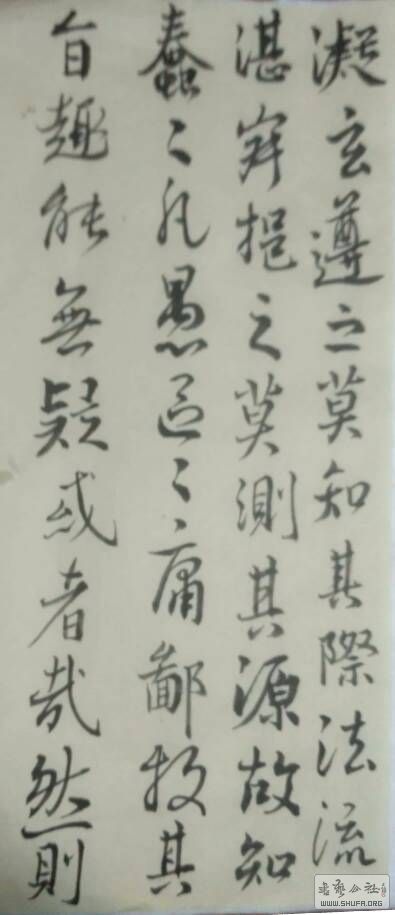 凝玄遵之莫知其際法流
湛寂挹之莫測其源故知
蠢〻凡愚區〻庸鄙投其
旨趣能無疑或者哉然則
WWW.SHUFA.ORG